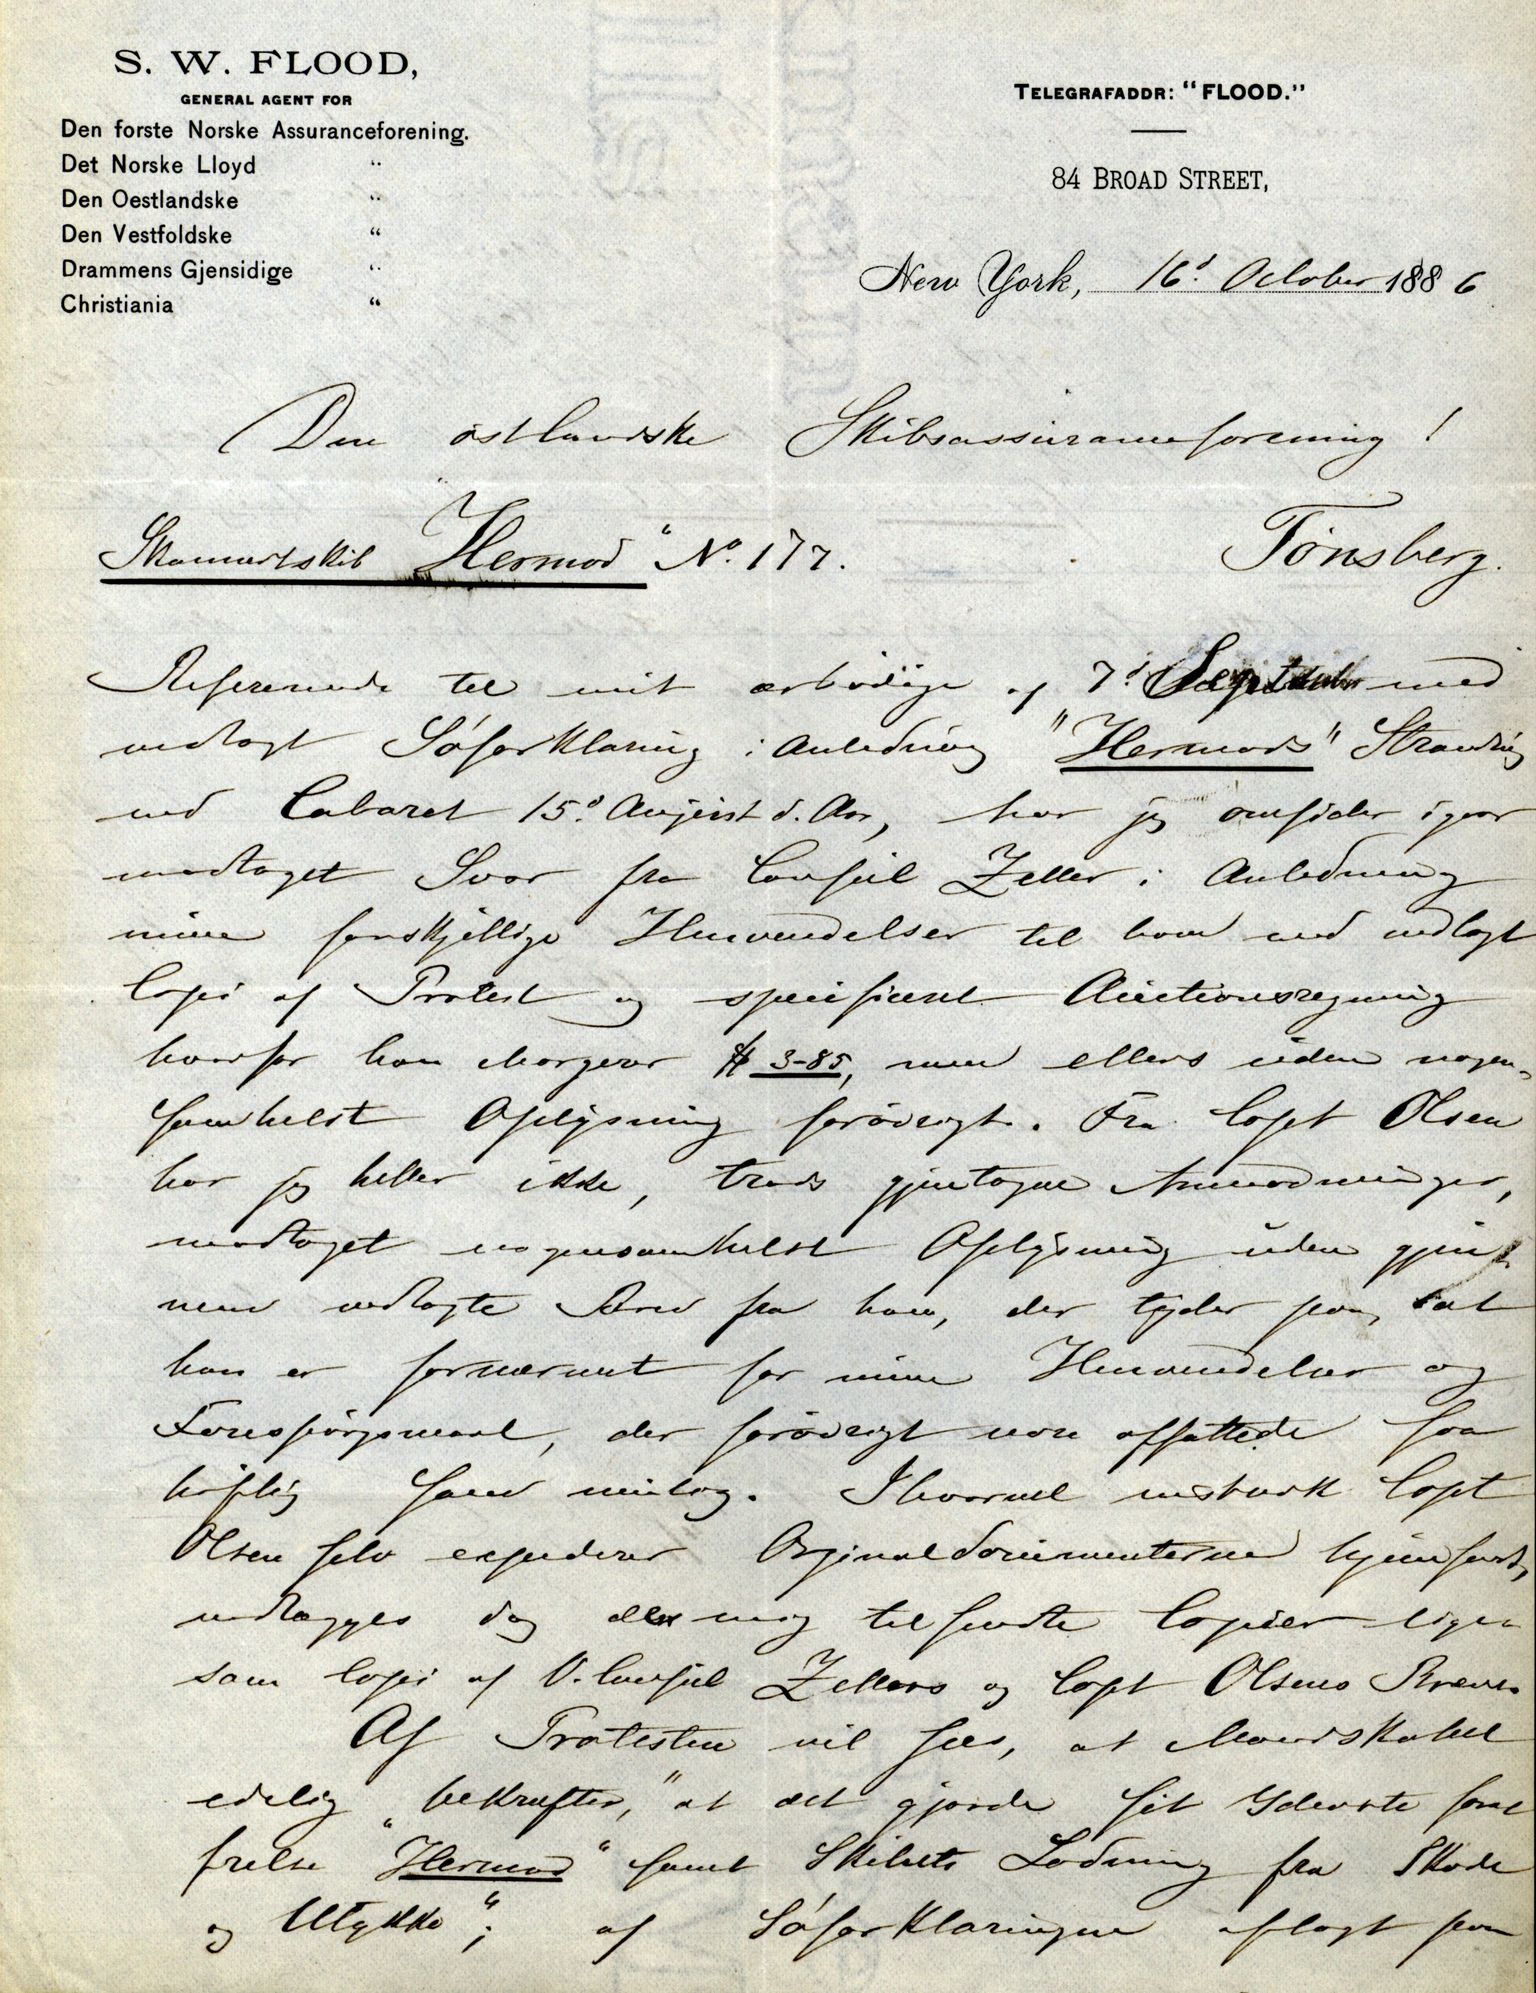 S. W. FLOOD,
GENERAL AGENT FOR
Den forste Norske Assuranceforening.
Det Norske Lloyd "
Den Oestlandske "
Den Vestfoldske "
Drammens Gjensidige "
Christiania "
TELEGRAFADDR: "FLOOD."
84 BROAD STREET,
New York, 16d October 1886
Den østlandske Skibsassuranceforening!
Skonnertskib "Hermod" No. 177.
Tönsberg.
Refererende til mit ærbödige af 7d September med
vedlagt Söforklaring i Anledning "Hermods" Stranding
ved Cabaret 15d August d. Aar, har jeg omsider igaar
modtaget Svar fra Consul Zeller i Anledning
mine forskjellige Henvendelser til ham med vedlagt
Copi af Protest og specificeret Auctionsregning
hvorfor han chargerer $ 3-85, men ellers uden nogen-
somhelst Oplysning forövrigt. Fra Capt Olsen
har jeg heller ikke, trods gjentagne Anmodninger,
modtaget nogensomhelst Oplysning uden gjen-
nem vedlagte Brev fra ham, der tyder paa, at
han er fornærmet for mine Henvendelser og
Forespörgsmaal, der forövrigt vare affattede saa
höflig som mulig. Ihvorvel Capt
Olsen selv expederer Orginaldocumenterne hjemsendt,
vedlægges dog de mig tilsendte Copier ligee
som Copi af V. Consul Zellers og Capt Olsens Breve.
Af Protesten vil sees, at Mandskabet
edelig "bekræfter," at det gjorde sit Yderste for at
frelse "Hermod" samt Skibets Ladning fra Skade
og Ulykke"; af Söforklaringen aflagt paa